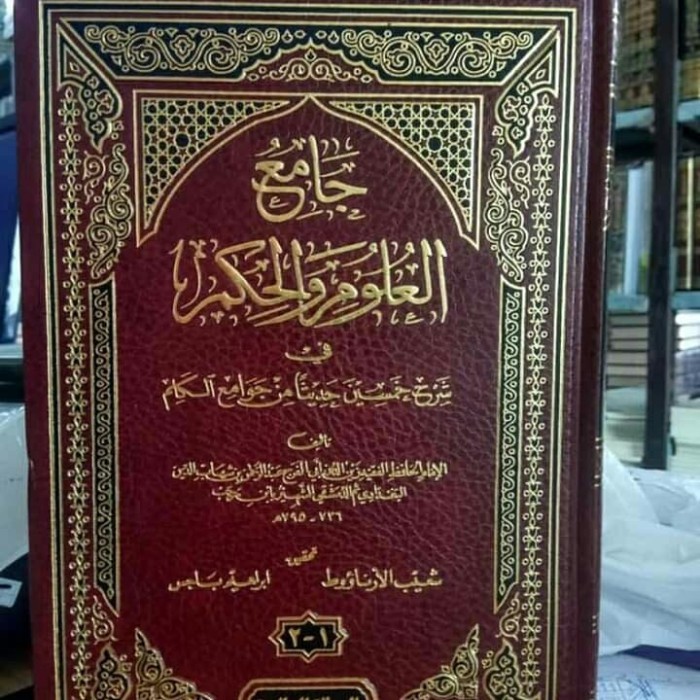 جَامِعُ
العُلُومِ وَالحِكَمِ
في
شَرْحِ خَمْسِينَ حَدِيثًا مِنْ جَوَامِعِ الكَلِمِ
تأليف
الإمام الحافظ الفقيه زين الدين أبي الفرج عبد الرحمن بن شهاب الدين
البغدادي ثم الدمشقي الشهير بابن رجب
٧٣٦ - ٧٩٥ هـ
تحقيق
شعيب الأرناؤوط ابراهيم باجس
١-٢